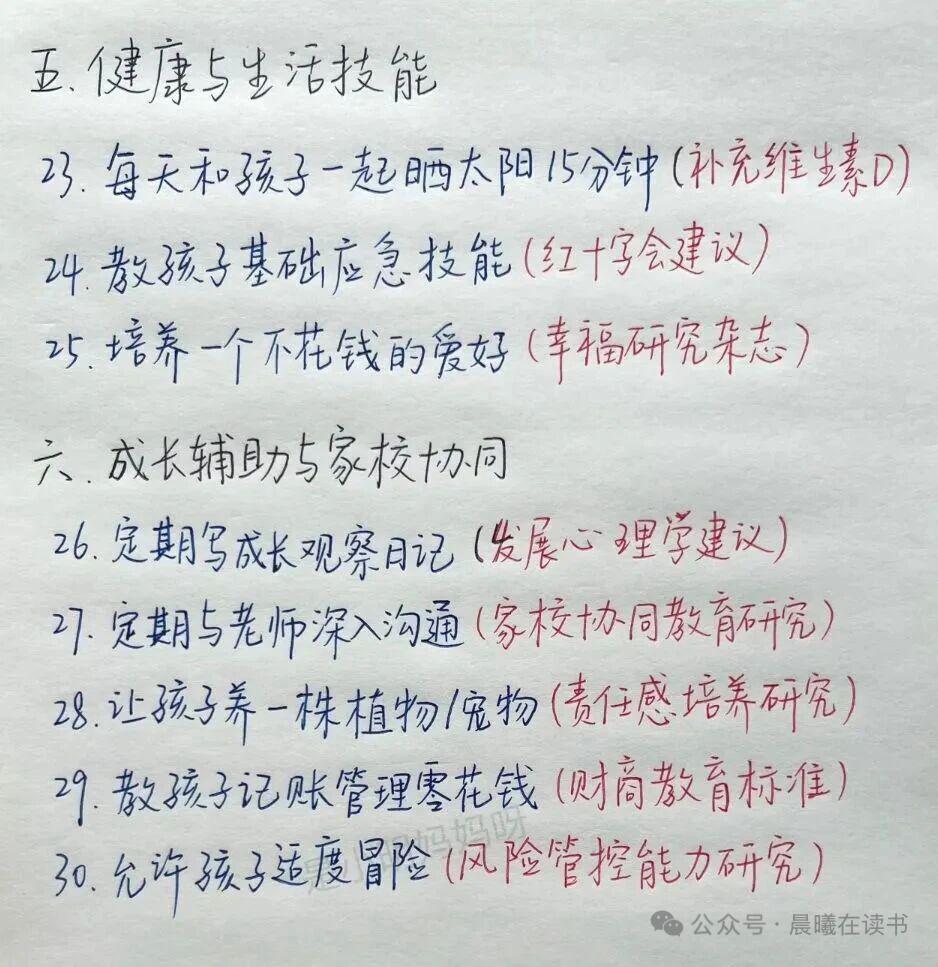 五.健康与生活技能
23.每天和孩子一起晒太阳15分钟(补充维生素D)
24.教孩子基础应急技能(红十字会建议)
25.培养一个不花钱的爱好(幸福研究杂志)
六.成长辅助与家校协同
26.定期写成长观察日记(发展心理学建议)
27.定期与老师深入沟通(家校协同教育研究)
28.让孩子养一株植物/宠物(责任感培养研究)
29.教孩子记账管理零花钱(财商教育标准)
妈妈呀
30.允许孩子适度冒险(风险管控能力研究)
公众号·晨曦在读书